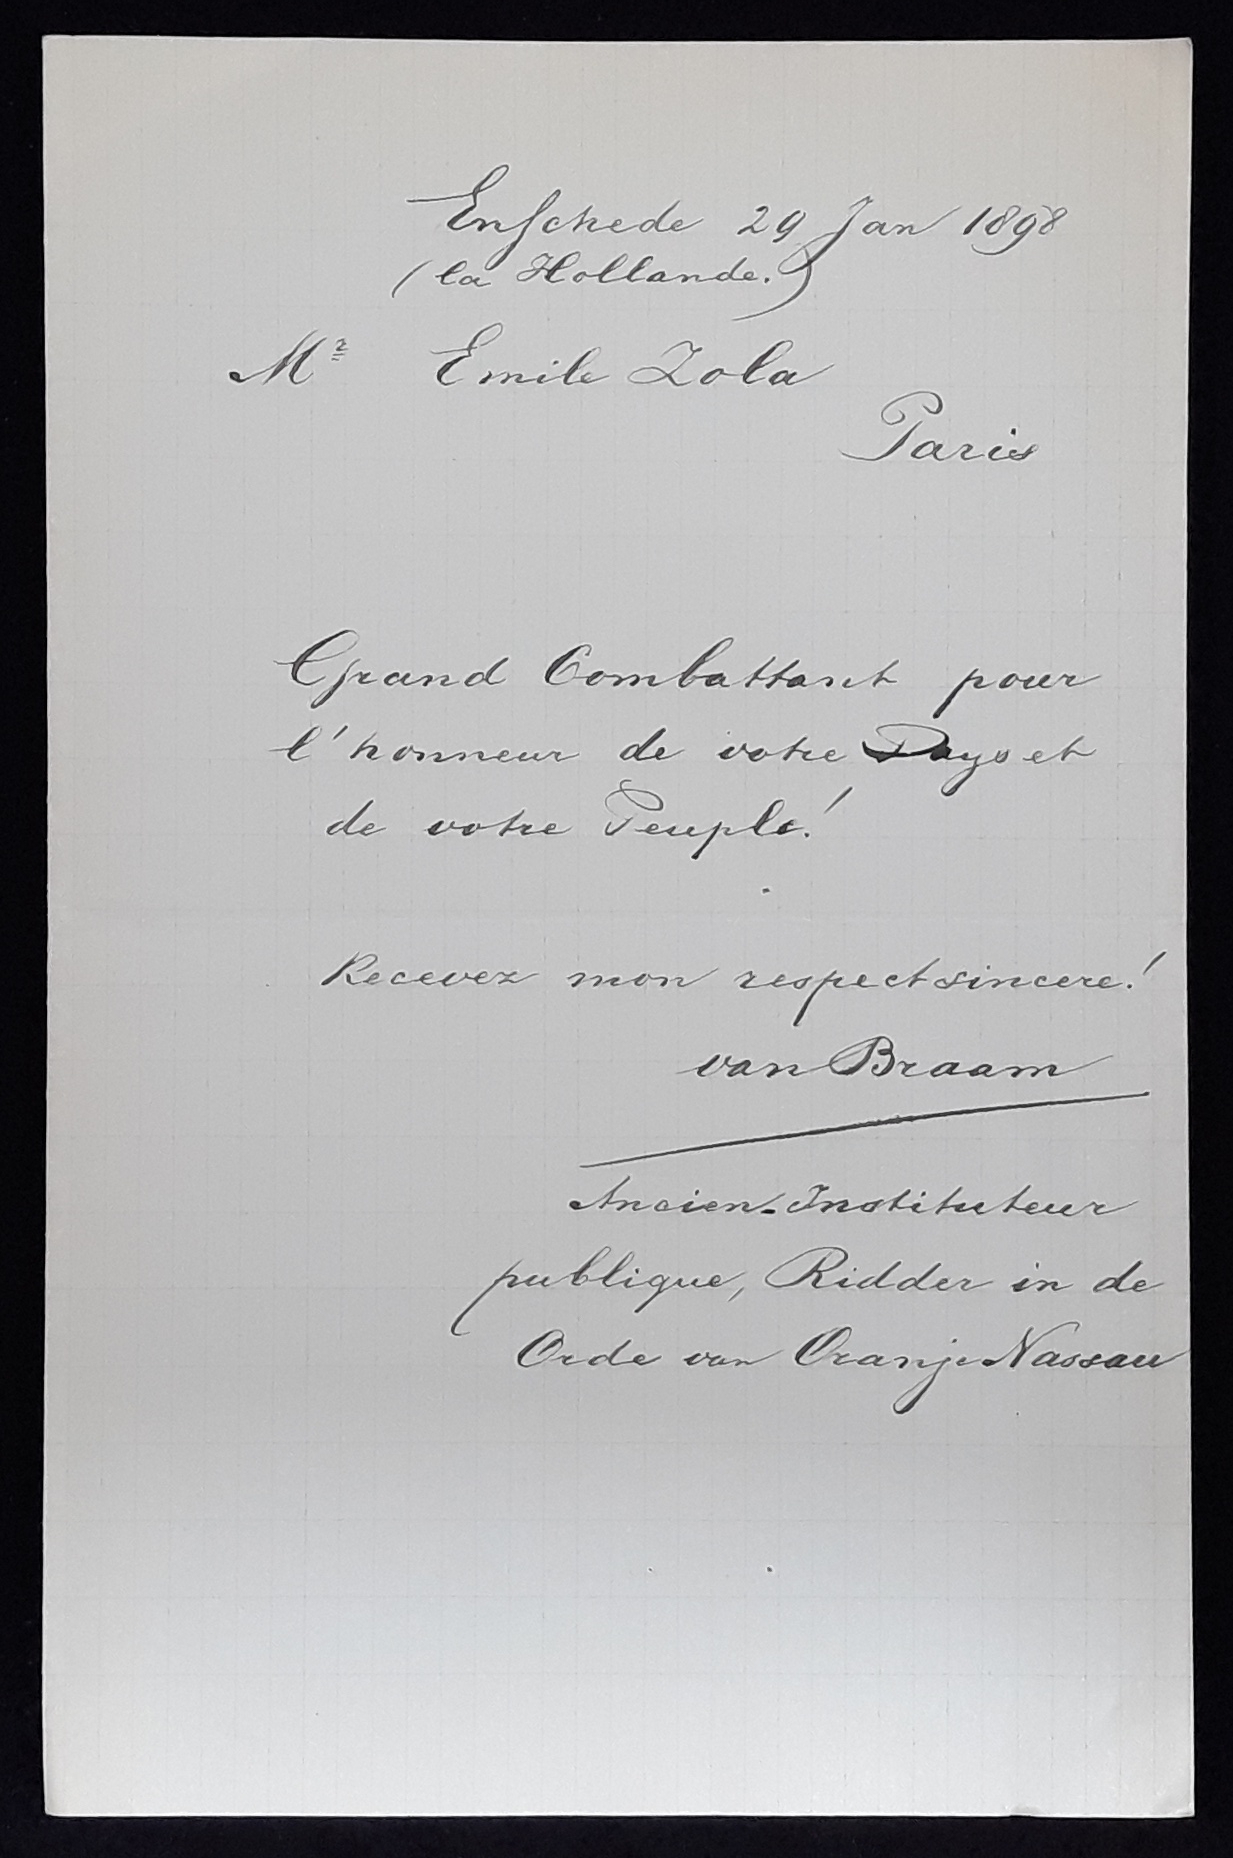 Enschede 29 Jan 1898
(la Hollande.)
Mr Emile Zola
Paris
Grand Combattant pour
l'honneur de votre Pays et
de votre Peuple!
Recevez mon respect sincere!
van Braam
Ancien-Instituteur
publique, Ridder in de
Orde van Oranje Nassau